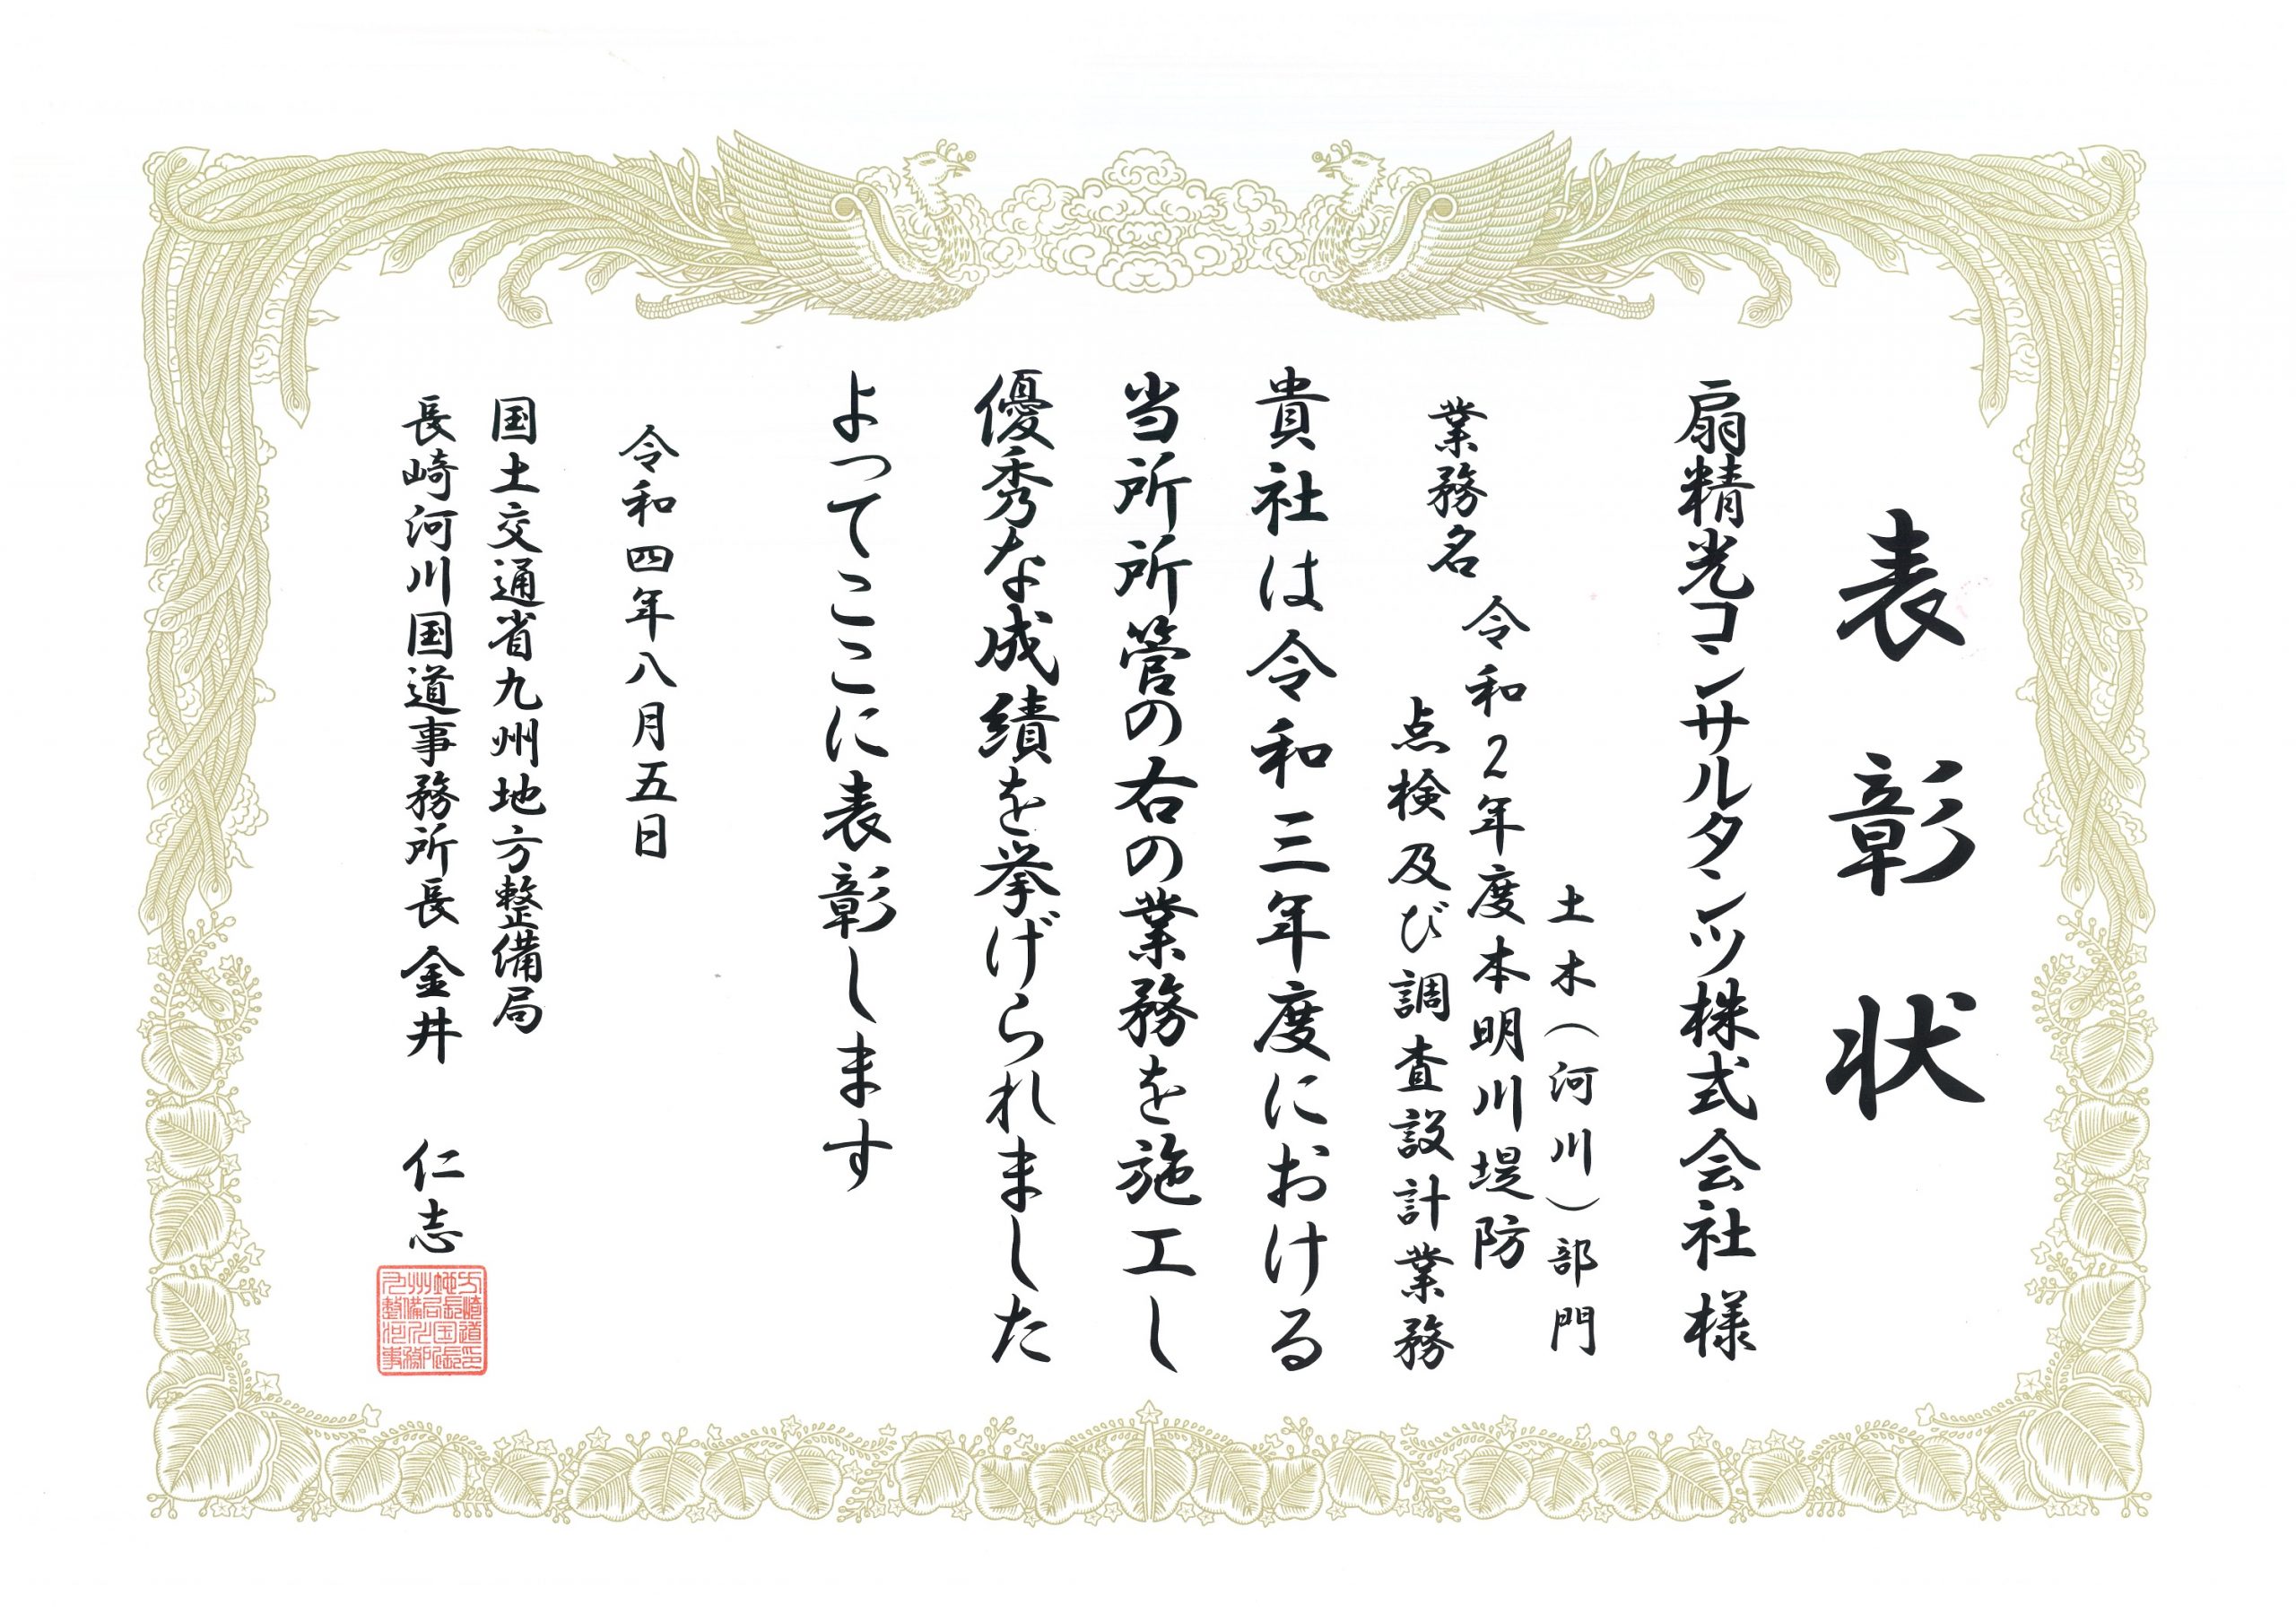 表彰状
扇精光コンサルタンツ株式会社様
土木（河川）部門
業務名
令和2年度本明川堤防
点検及び調査設計業務
貴社は令和三年度における
当所所管の右の業務を施工し
優秀な成績を挙げられました
よってここに表彰します
令和四年八月五日
国土交通省九州地方整備局
長崎河川国道事務所長 金井 仁志